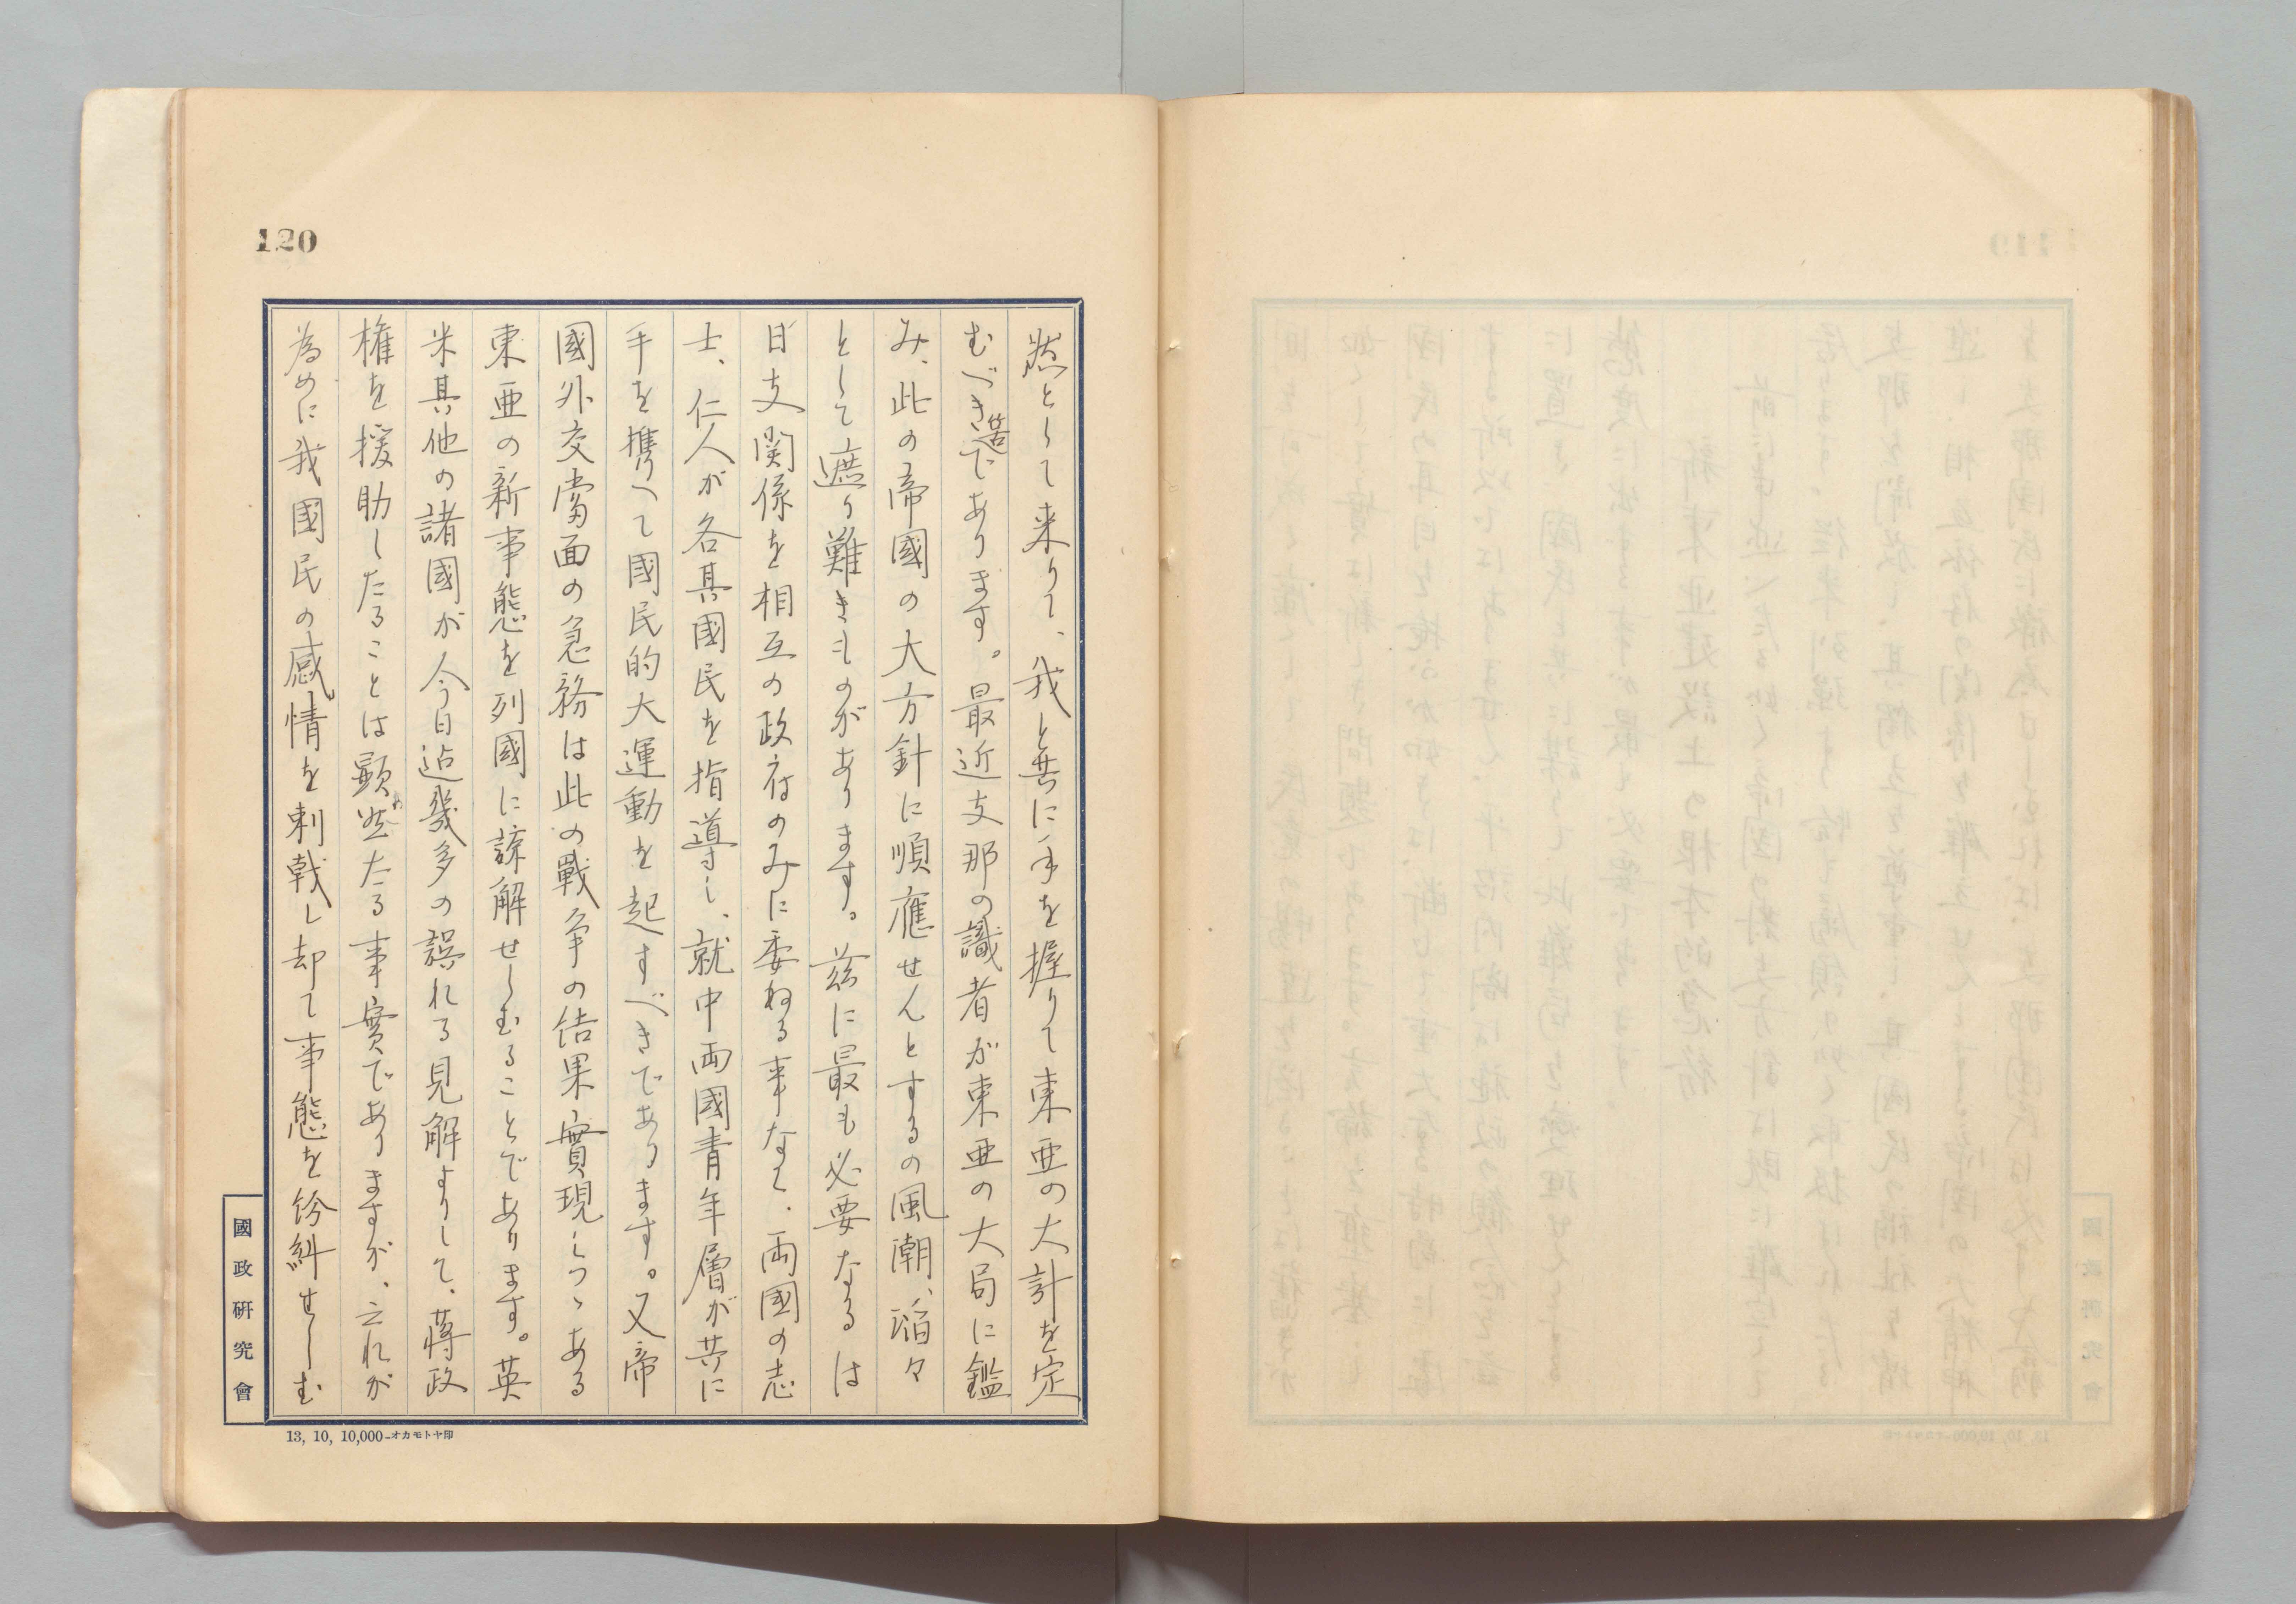 120
然として来りて、我と共に手を握りて東亜の大計を定
むべき筈であります。最近支那の識者が東亜の大局に鑑
み、此の帝國の大方針に順應せんとするの風潮、滔々
として遮り難きものがあります。茲に最も必要なるは
日支関係を相互の政府のみに委ねる事なく、両國の志
士、仁人が各其國民を指導し、就中両國青年層が共に
手を携へて國民的大運動を起すべきであります。又帝
國外交當面の急務は此の戰争の結果實現しつゝある
東亜の新事態を列國に諒解せしむることであります。英
米其他の諸國が今日迄幾多の誤れる見解よりして、蒋政
権を援助したることは顕然たる事實でありますが、之れが
為めに我國民の感情を刺戟し却て事態を紛糾せしむ
國政研究會
13, 10, 10,000-オカモトヤ印